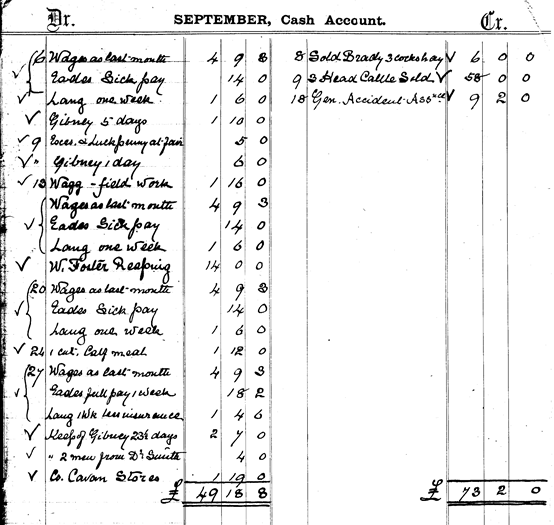 Dr. SEPTEMBER, Cash Account. Cr.
6 Wages as last month 4 9 3
Eades Sick pay 14 0
Lang one week 1 6 0
Gibney 5 days 1 10 0
9 & Luck penny at Fair 5 0
" Gibney 1 day 6 0
13 Wagg - field work 1 16 0
Wages as last month 4 9 3
Eades Sick pay 14 0
Lang one week 1 6 0
W. Foster Reaping 14 0 0
20 Wages as last month 4 9 3
Eades Sick pay 14 0
Lang one week 1 6 0
24 1 cwt. Calf meal 1 12 0
27 Wages as last month 4 9 3
Eades full pay 1 week 18 2
Lang 1 Wk less insurance 1 4 6
Keep of Gibney 23½ days 2 7 0
" 2 men from Dr Smith 4 0
Co. Cavan Stores 1 19 0
£ 49 18 8
8 Sold Brady 3 cocks hay 6 0 0
9 2 Head Cattle Sold 58 0 0
18 Gen. Accident Assnce 9 2 0
£ 73 2 0